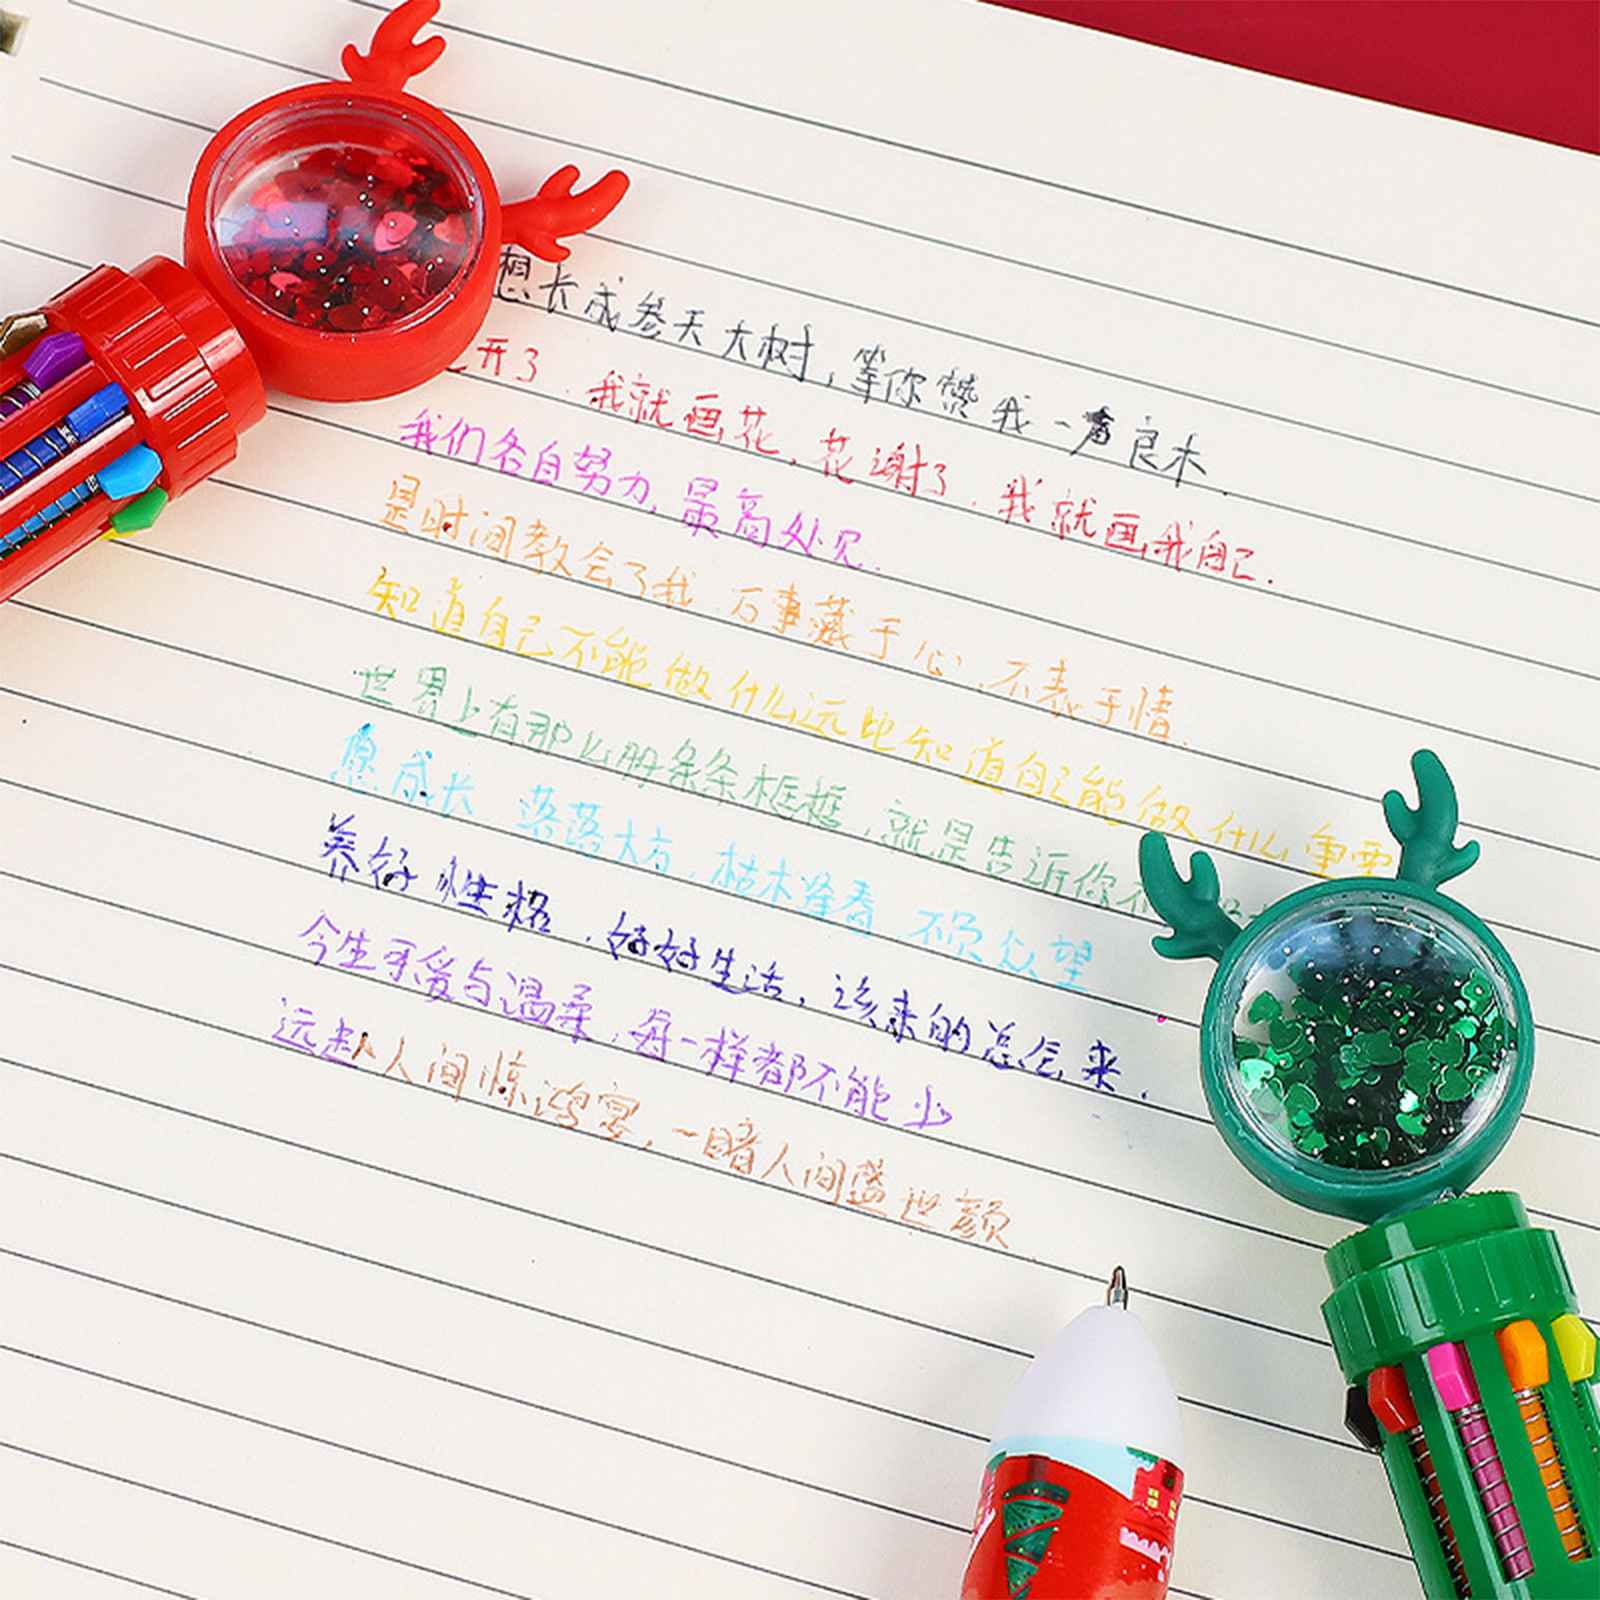 想长成参天大树,等你赞我一声良木.
开了.我就画花,花谢了.我就画我自己.
我们各自努力,最高处见.
是时间教会了我.万事藏于心,不表于情.
知道自己不能做什么远比知道自己能做什么重要
世界上有那么所条条框框,就是告诉你不
愿成长 落落大方,枯木逢春 不负众望
养好性格.好好生活,该来的总会来.
今生可爱与温柔,每一样都不能少
远赴人间惊鸿宴,一睹人间盛世颜.